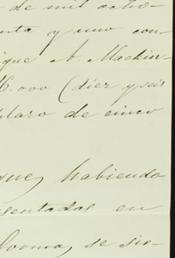 de mil ocho-
enta y uno con-
que A. Mackin-
6.000 (diez y seis
plazo de cinco
que, habiendo
sentadas en
forma, se sir-